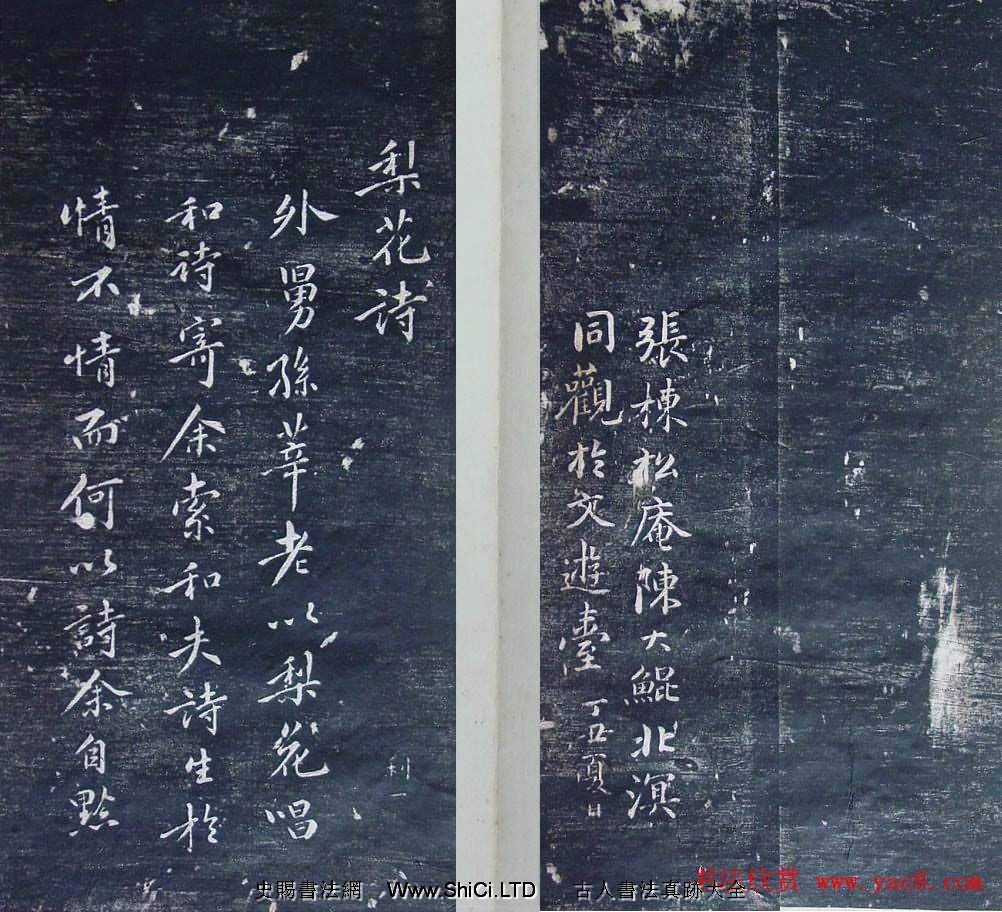 張棟松庵陳大鯤北溟
同觀於文遊臺 丁丑夏日
梨花詩
外舅孫莘老以梨花唱
和詩寄余索和夫詩生於
情不情而何以詩余自黔
利一
史賜書法網 Www.ShiCi.LTD 古人書法真跡大全